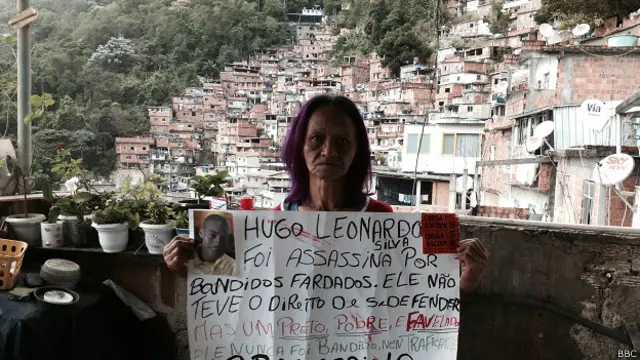 HUGO LEONARDO
SILVA
FOI ASSASSINA POR
BANDIDOS FARDADOS. ELE NÃO
TEVE O DIREITO DE SE DEFENDER
MAS UM PRETO, POBRE, E FAVELADO
ELE NUNCA FOI BANDIDO, NEN TRAFICAN
Via
SKY
BBC